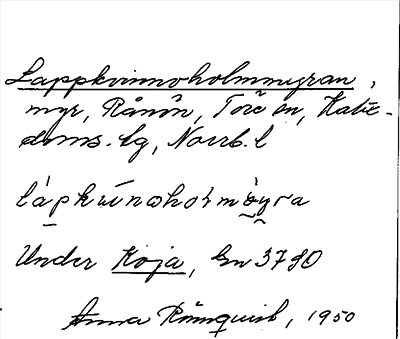 Lappkvinnoholmmyran,
myr, Rånön, Töre sn, Kalix-
doms. lg, Norrb. l
Under Koja, Gn 3780
Anna Rönnquist, 1950